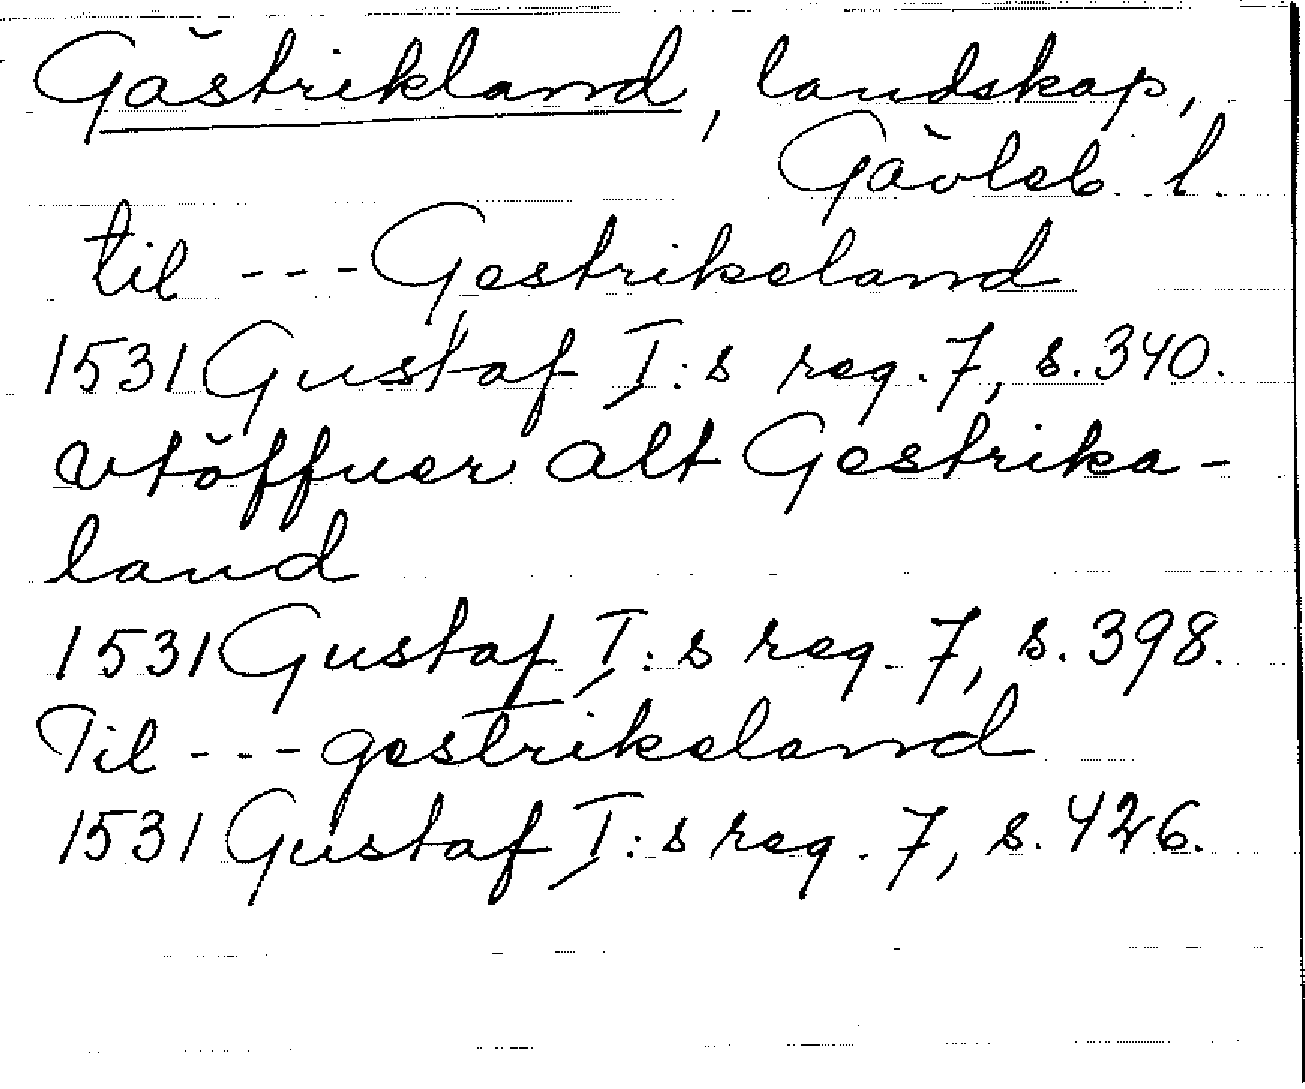 Gästrikland, landskap,
Gävleb. l.
til --- Gestrikeland
1531 Gustaf I:s reg. 7, s. 340.
vtöffuer alt Gestrika-
land
1531 Gustaf I:s reg. 7, s. 398.
Til --- gestrikeland
1531 Gustaf I:s reg. 7, s. 426.